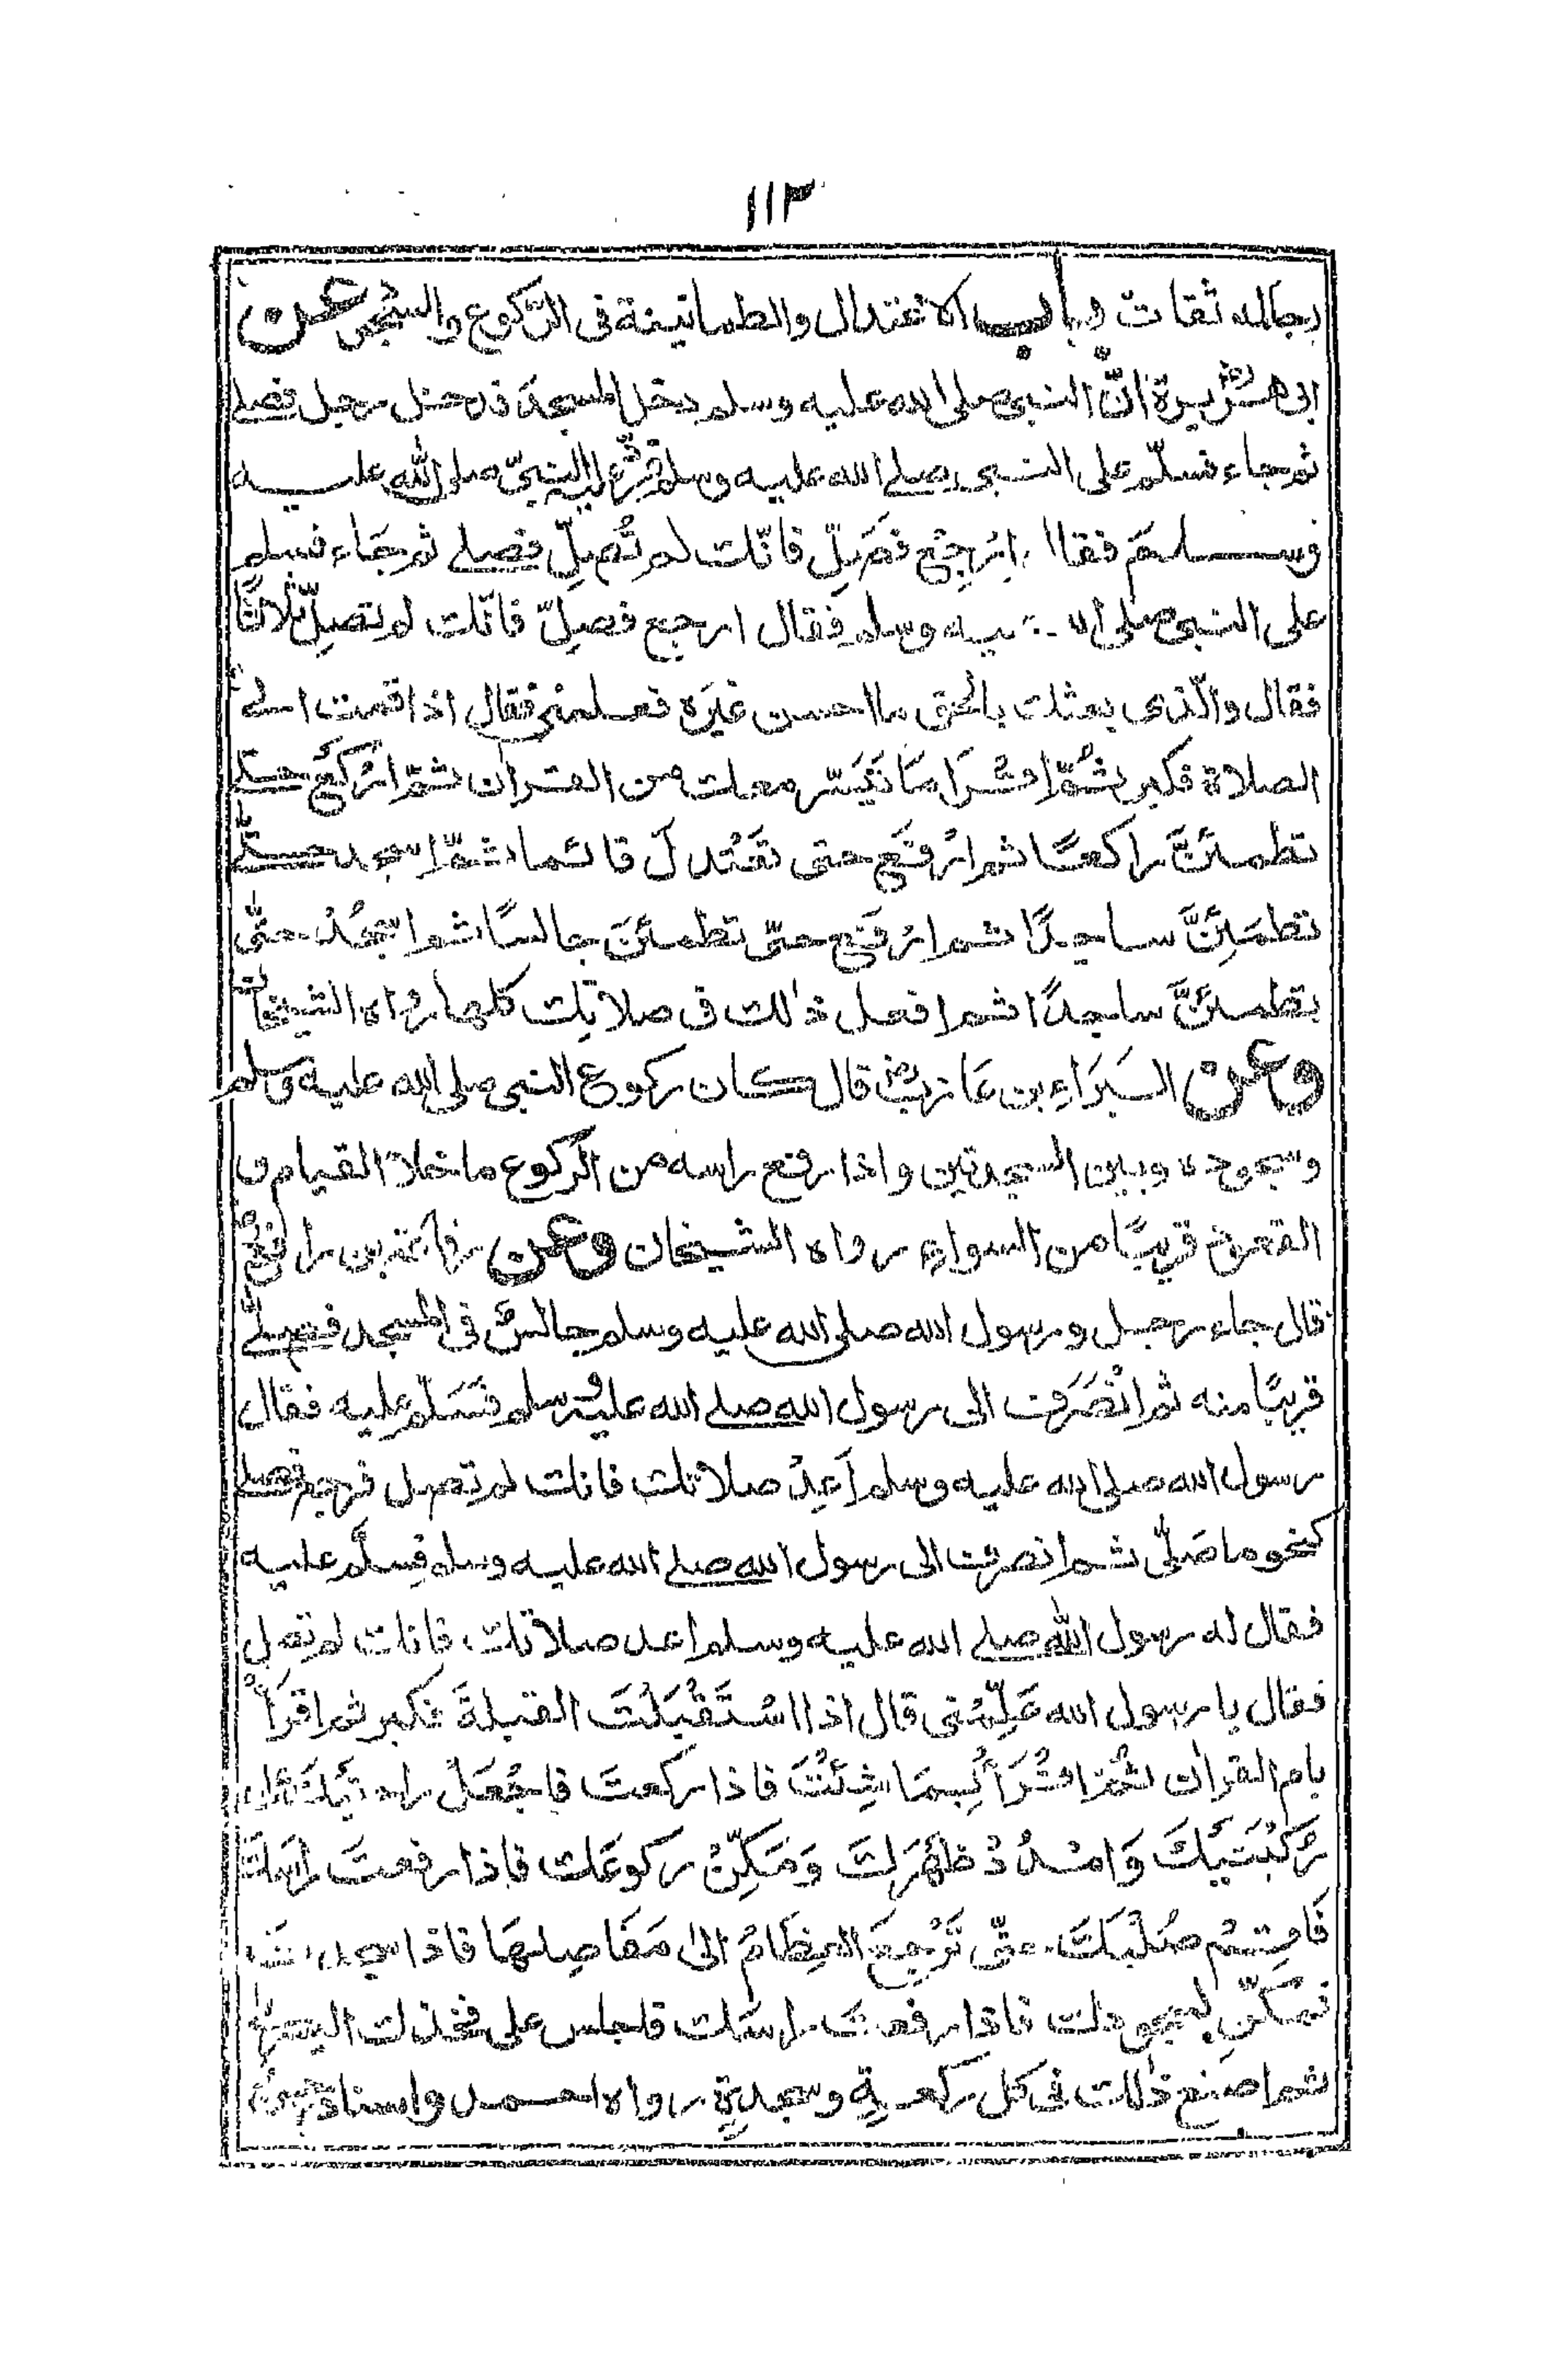 ١١٣
رجاله ثقات باب الاعتدال والطمانينة فى الرّكوع والسّجود عن
ابى هريرة انّ النبى صلى الله عليه وسلم دخل المسجد فدخل رجل فصلے
ثم جاء فسلّم على النبى صلے الله عليه وسلم النبىّ صلى الله عليه
وسلم فقال ارْجِعْ فصَلِّ فانّك لم تُصلِّ فصلے ثم جَاء فسلم
على النبى صلى وسلم فقال ارجع فصلِّ فانّك لم تصلِّ ثلاثًا
فقال والّذى بعثك بالحق ما احسن غيرَه فعلمنى فقال اذا قمت الے
الصلاة فكبر ثُمَّ اقْرَا مَا تَيَسّر معك من القران ثمّ ارْكَعْ حتے
تطمئنَّ راكعًا ثم ارْفَع حتى تَعْتدلَ قائما ثمّ اسجد حتّے
تطمَئِنَّ ساجدًا ثم ارْفَع حتّى تطمئنَ جالسًا ثم اسجُدْ حتّى
تطمئنَّ ساجدًا ثم افعل ذٰلك فى صلاتك كلها رواه الشيخان
وعن البَرَاءِ بن عَازبٍ قال كان ركوع النبى صلى الله عليه وسلم
وسجوده وبين السجدتين واذا رفع راسه من الرّكوع ما خلا القيام و
القعود قريبًا من السواء رواه الشيخان وعن رفاعة بن رافع
قال جاء رجل ورسول الله صلى الله عليه وسلم جالسٌ فى المسجد فصلّے
قريبًا منه ثم انْصَرَف الى رسول الله صلے الله عليه وسلم فَسَلّم عليه فقال
رسول الله صلى الله عليه وسلم اَعِدْ صلاتك فانك لم تصل فرجع فصلے
كنحو ما صَلّى ثم انصرف الى رسول الله صلے الله عليه وسلم فسلَّم عليه
فقال له رسول الله صلے الله عليه وسلم اعد صلاتك فانك لم تصل
فقال يا رسول الله عَلِّمْنى قال اذا اسْتَقْبَلْتَ القبلةَ فكبر ثم اقرَأْ
بام القران ثُمّ اقْرَأْ بِمَا شِئْتَ فاذا ركعتَ فاجْعَلْ
رُكْبَتَيْكَ وَامْدُدْ ظَهْرَكَ وَمَكِّنْ ركوعَك فاذا رفعتَ رَاسَكَ
فَاَقِمْ صُلْبَكَ حتّى تَرْجِعَ العِظَامُ الىٰ مَفَاصِلِهَا فاذا
فمَكِّنْ لسجودك فاذا رفعتَ راسَك فاجلس على فخذك اليسرىٰ
ثم اصنع ذٰلك فى كل ركعةٍ وسجدةٍ رواه احمد واسناده